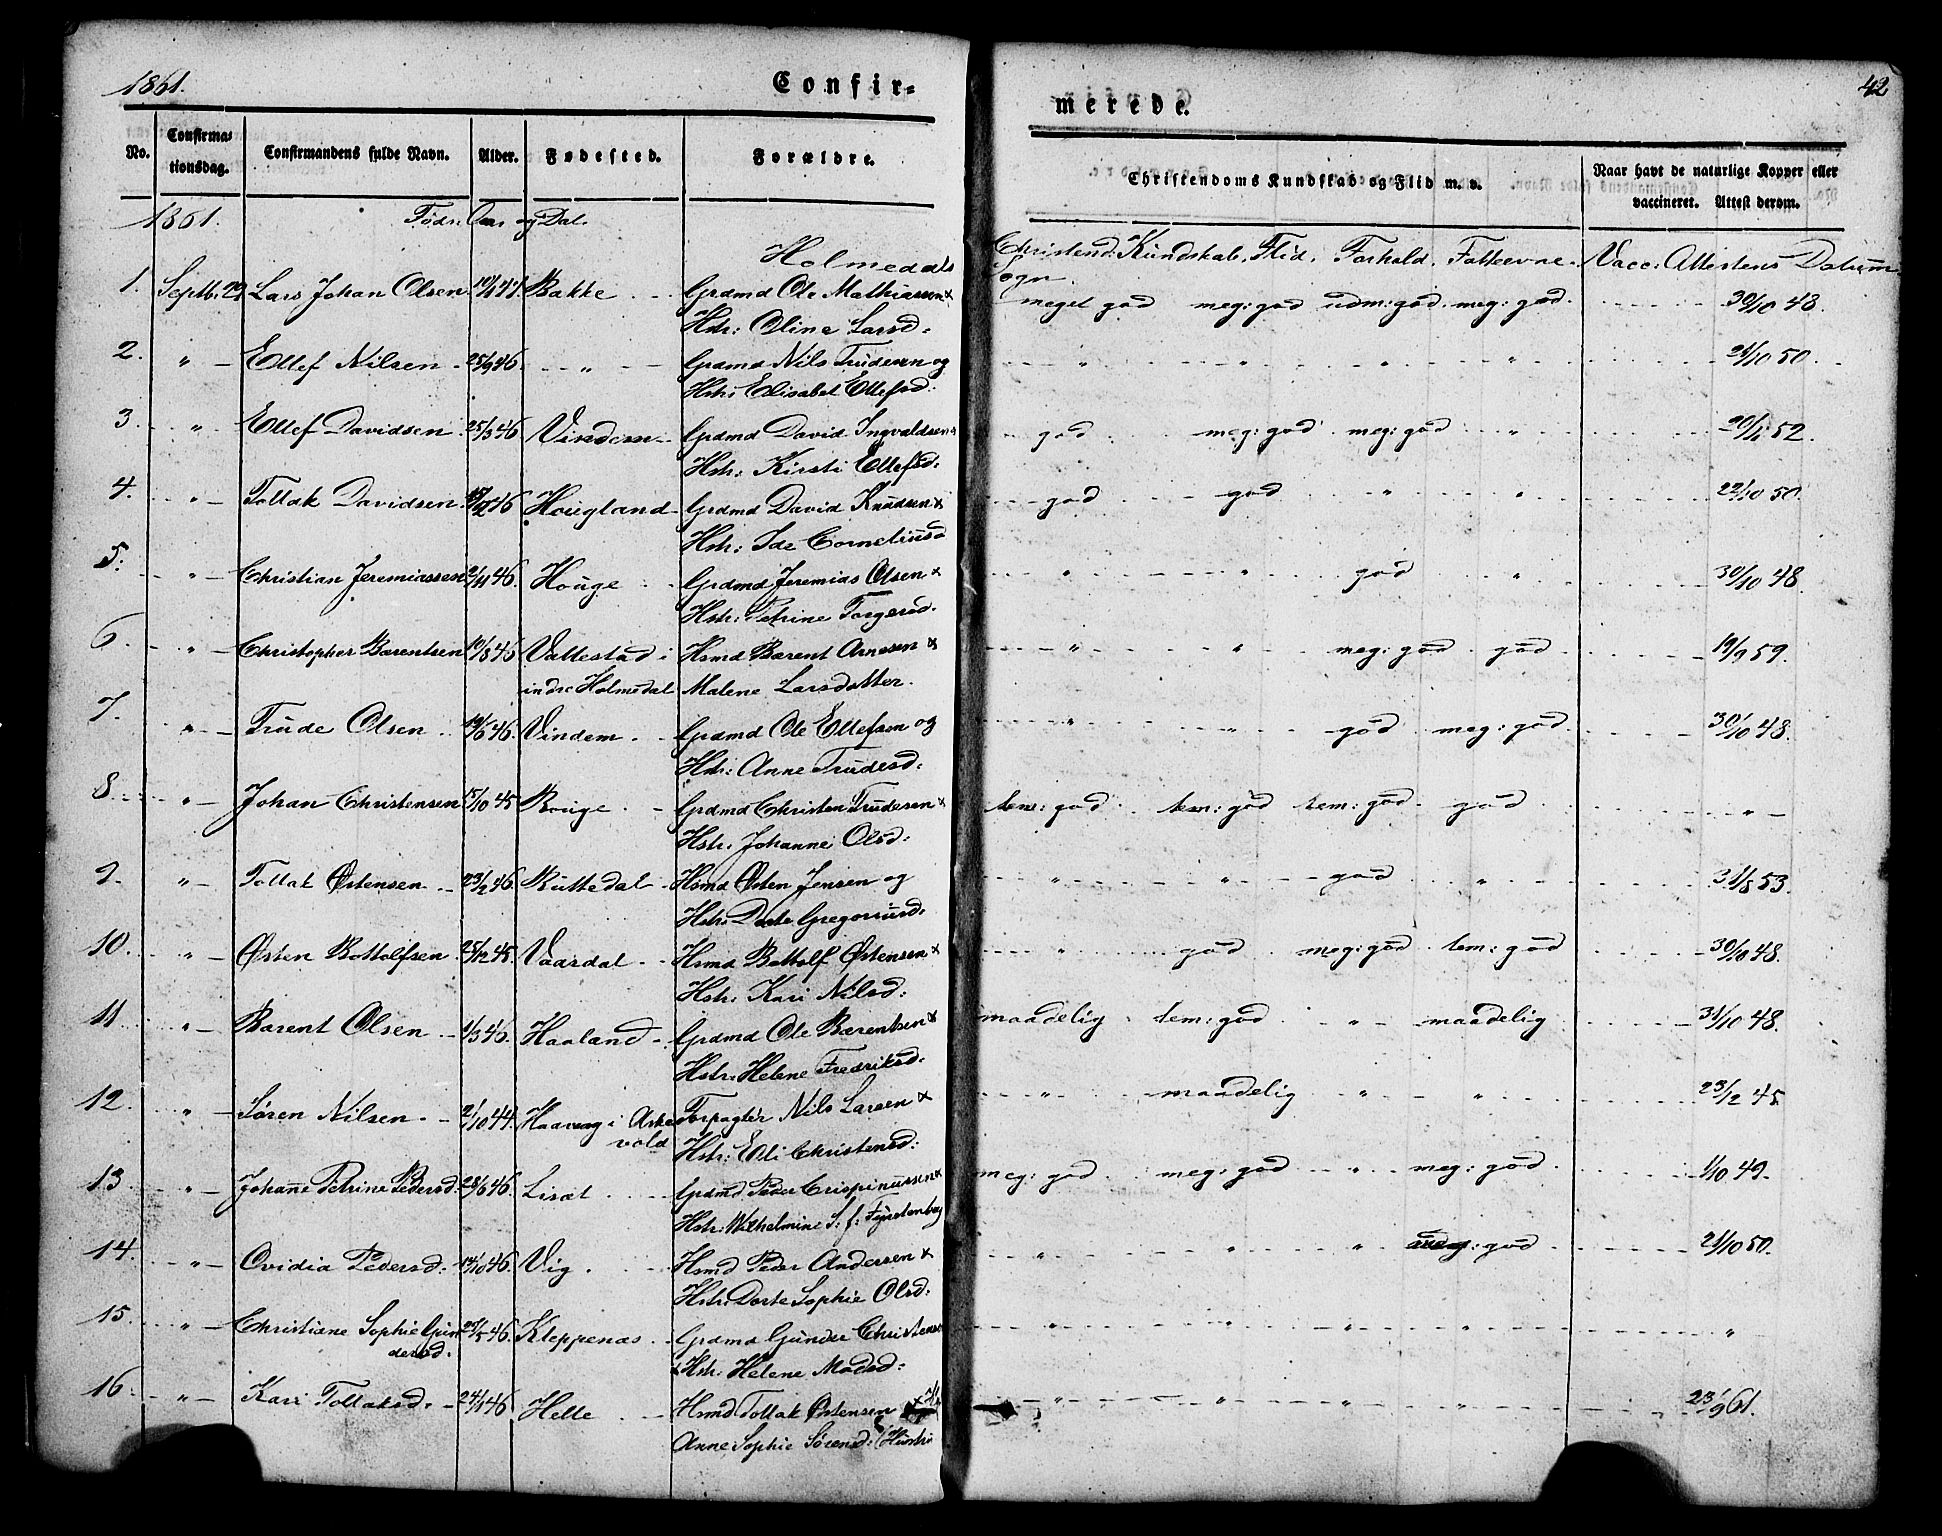 1861. Confir= merede. 42
No. Confirma= tionsdag. Confirmandens fulde Navn. Alder. Fødested. Forældre. Christendoms Kundskab og Flid m. v. Naar havt de naturlige Kopper eller vaccineret. Attest derom.
1861. Føds: Aar og Dal.
Holmedals Sogn Christend: Kundskab, Flid, Forhold, Fatteevne. Vacc: Attestens Datum
1. Septbr. 29 Lars Johan Olsen Bakke Grdmd Ole Mathiassen & meget god meg: god udm: god meg: god. 30/10 48.
Hstr: Oline Larsd:
2. " Ellef Nilsen 25/9 46 " Grdmd Nils Trudesen og " " " " 21/10 50.
Hstr: Elisabet Ellefsd:
3. " Ellef Davidsen 25/3 46 Vindem Grdmd David Ingvaldsen & god meg: god meg: god " 52.
Hstr: Kirsti Ellefsd:
4. " Tollak Davidsen 46 Hougland Grdmd David Knudsen & god god " " 50
Hstr: Ide Corneliusd
5. " Christian Jeremiassen 2/11 46. Houge Grdmd Jeremias Olsen & " " god " 30/10 48.
Hstr: Petrine Torgersd.
6. " Christopher Barentsen 10/8 46 Vallestad i Hsmd Barent Arnesen & " " meg: god god 19/9 59.
indre Holmedal Malene Larsdatter.
7. " Trude Olsen 19/6 46. Vindem Grdmd Ole Ellefsen og " " god meg: god 30/10 48.
Hstr: Anne Trudesd:
8. " Johan Christensen 15/10 45 Bouge Grdmd Christen Trudesen & tem: god tem: god tem: god god "
Hstr. Johanne Olsd:
9. " Tollak Østensen 23/2 46 Ruttedal Hsmd Østen Jensen og " " god " 31/8 53.
Hstr: Dorte Gregoriusd:
10. " Østen Bottolfsen 25/12 45. Vaardal Hsmd Bottolf Østensen & " god meg: god tem: god 30/10 48.
Hstr: Kari Nilsd:
11. " Barent Olsen 1/3 46. Haaland Grdmd Ole Barentsen & maadelig tem: god " maadelig 31/10 48.
Hstr: Helene Fredriksd:
12. " Søren Nilsen 2/10 44. Haavaag i Aske Forpagter Nils Larsen & " maadelig " " 23/2 45
vold Hstr: Eli Christensd:
13. " Johanne Petrine Pedersd: 28/6 46. Liset Grdmd Peder Crispinussen & meg: god meg: god " meg: god 1/10 49.
Hstr: Wilhelmine S: f: Fyrstenberg
14. " Ovidia Pedersd: 14/10 46. Vig. Hsmd Peder Andersen & " " " meg: god 21/10 50.
Hstr: Dorte Sophie Olsd:
15. " Christiane Sophie Gun 29/5 46. Kleppenæs Grdmd Gunder Christens " " " " "
dersd. & Hstr: Helene Madsd:
16. " Kari Tollaksd. 24/1 46 Helle Hsmd Tollak Østensen " " " " 23/9 61.
Anne Sophie Sørensd: (Hustru